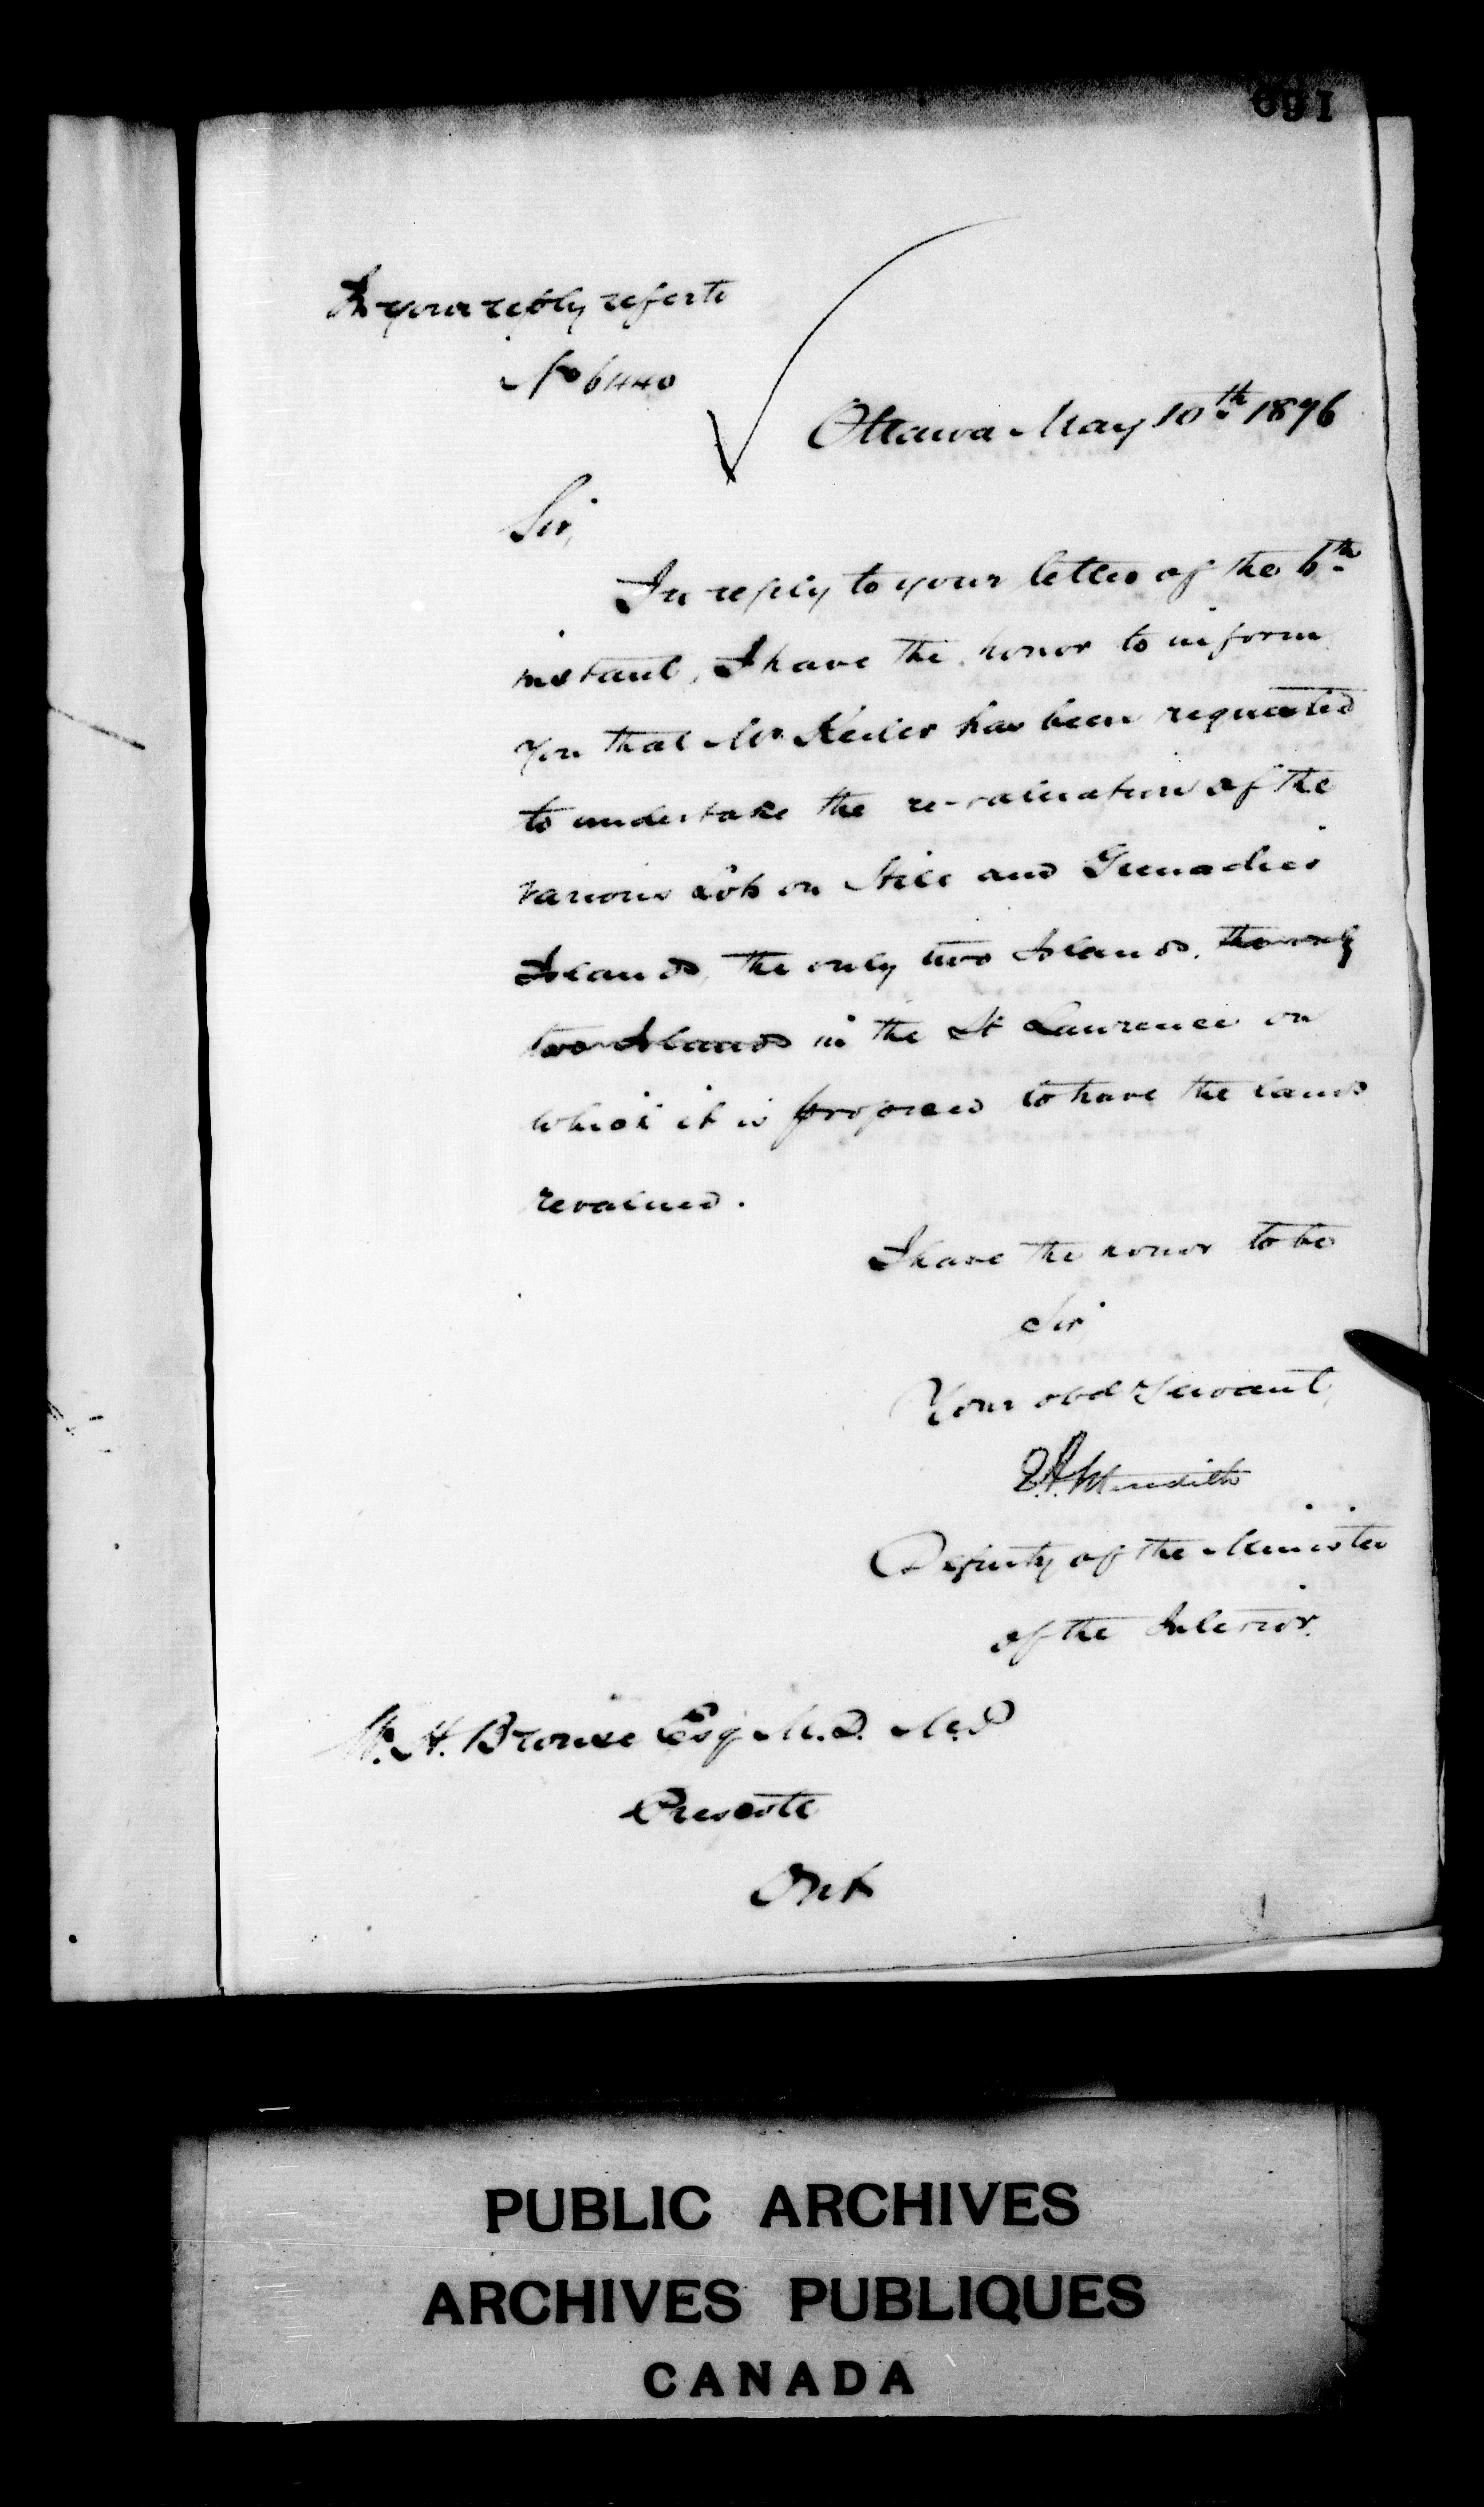 169
In your reply refer to
No 6440
Ottawa May 10th 1876
Sir,
In reply to your letter of the 6th
instant, I have the honor to inform
you that Mr. Keeler has been requested
to undertake the re-valuation of the
various Lots on Hill and Grenadier
Islands, the only two Islands, the only
two Islands in the St Lawrence on
which it is proposed to have the lands
revalued.
I have the honor to be
Sir
Your obdt Servant,
E.A. Meredith
Deputy of the Minister
of the Interior.
W. H. Brouse Esq M.D. M.P
Prescott
Ont
PUBLIC ARCHIVES
ARCHIVES PUBLIQUES
CANADA